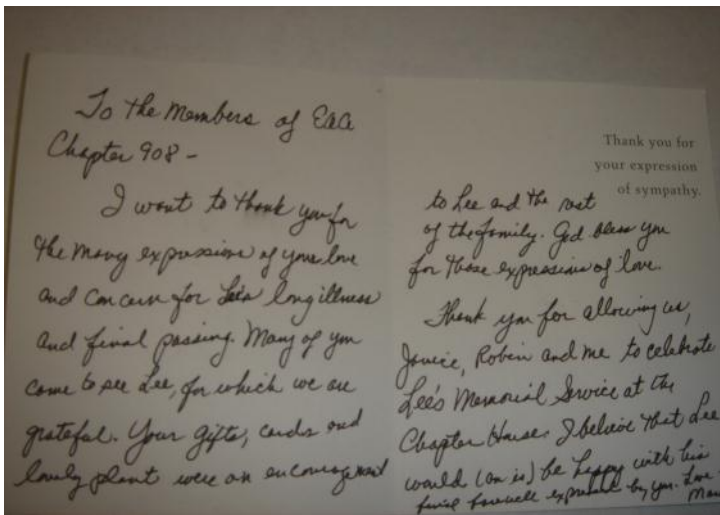 To the Members of EAA
Chapter 908 -
I want to thank you for
the many expressions of your love
and concern for Lee's long illness
and final passing. Many of you
came to see Lee, for which we are
grateful. Your gifts, cards and
lovely plant were an encouragement
Thank you for
your expression
of sympathy.
to Lee and the rest
of the family. God bless you
for those expressions of love.
Thank you for allowing us,
Janice, Robin and me to celebrate
Lee's Memorial Service at the
Chapter House. I believe that Lee
would (or is) be happy with his
final farewell expressed by you. Love